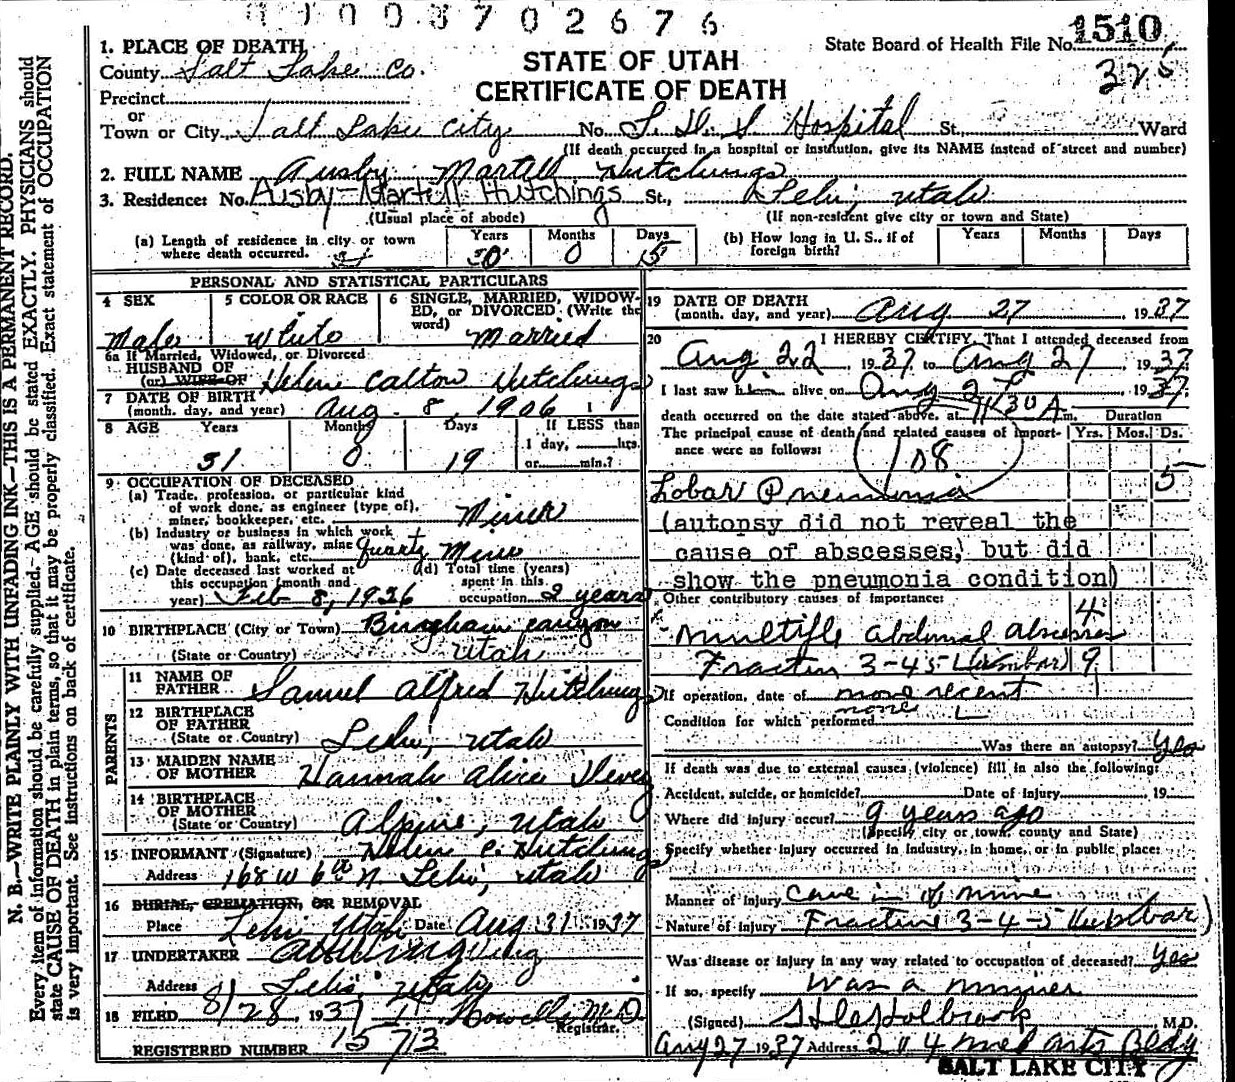 0 0 0 3 7 0 2 6 7 6
1. PLACE OF DEATH
County Salt Lake Co.
Precinct
or
Town or City Salt Lake City No. L. D. S Hospital St. Ward
(If death occurred in a hospital or institution, give its NAME instead of street and number)
STATE OF UTAH
CERTIFICATE OF DEATH
State Board of Health File No. 1510
325
2. FULL NAME Ausby Martell Hutchings
3. Residence: No. Ausby-Martell Hutchings St., Lehi, Utah
(Usual place of abode) (If non-resident give city or town and State)
(a) Length of residence in city or town where death occurred. Years Months 0 Days 5
(b) How long in U. S., if of foreign birth? Years Months Days
PERSONAL AND STATISTICAL PARTICULARS
4 SEX Male
5 COLOR OR RACE White
6 SINGLE, MARRIED, WIDOWED, or DIVORCED (Write the word) Married
6a If Married, Widowed, or Divorced
HUSBAND OF
(or) WIFE OF Helen Calton Hutchings
7 DATE OF BIRTH
(month, day, and year) Aug. 8, 1906
8 AGE Years 31 Months 0 Days 19 If LESS than 1 day, hrs. or min.?
9 OCCUPATION OF DECEASED
(a) Trade, profession, or particular kind of work done, as engineer (type of), miner, bookkeeper, etc. Miner
(b) Industry or business in which work was done, as railway, mine (kind of), bank, etc. Quartz Mine
(c) Date deceased last worked at this occupation (month and year) Feb 8, 1926
(d) Total time (years) spent in this occupation 2 years
10 BIRTHPLACE (City or Town) Bingham Canyon
(State or Country) Utah
PARENTS
11 NAME OF FATHER Samuel Alfred Hutchings
12 BIRTHPLACE OF FATHER
(State or Country) Lehi, Utah
13 MAIDEN NAME OF MOTHER Hannah Alice
14 BIRTHPLACE OF MOTHER
(State or Country) Alpine, Utah
15 INFORMANT (Signature) Helen C. Hutchings
Address 168 W 6th N. Lehi, Utah
16 BURIAL, CREMATION, OR REMOVAL
Place Lehi Utah Date Aug 31 1937
17 UNDERTAKER
Address Lehi Utah
18 FILED 8/28, 1937 M.D.
Registrar.
REGISTERED NUMBER 1573
19 DATE OF DEATH
(month, day, and year) Aug 27, 1937
20 I HEREBY CERTIFY, That I attended deceased from
Aug 22, 1937, to Aug 27, 1937
I last saw him alive on Aug 27, 1937
death occurred on the date stated above, at 11:30 A.m. Duration
The principal cause of death and related causes of importance were as follows: Yrs. Mos. Ds.
108
Lobar Pneumonia 5
(autopsy did not reveal the
cause of abscesses, but did
show the pneumonia condition)
Other contributory causes of importance:
4
Multiple Abdominal Abscesses
Fracture 3-4-5 (Lumbar) 9
If operation, date of none recent
none
Condition for which performed
Was there an autopsy? Yes
If death was due to external causes (violence) fill in also the following:
Accident, suicide, or homicide? Date of injury 19
Where did injury occur? 9 years ago
(Specify city or town, county and State)
Specify whether injury occurred in industry, in home, or in public place:
Manner of injury Cave in of mine
Nature of injury Fracture 3-4-5 (Lumbar)
Was disease or injury in any way related to occupation of deceased? Yes
If so, specify Was a miner
(Signed) Holbrook M.D.
Aug 27 1937 Address 204 Med Arts Bldg
SALT LAKE CITY
N. B.—WRITE PLAINLY WITH UNFADING INK—THIS IS A PERMANENT RECORD.
Every item of information should be carefully supplied. AGE should be stated EXACTLY. PHYSICIANS should
state CAUSE OF DEATH in plain terms, so that it may be properly classified. Exact statement of OCCUPATION
is very important. See instructions on back of certificate.